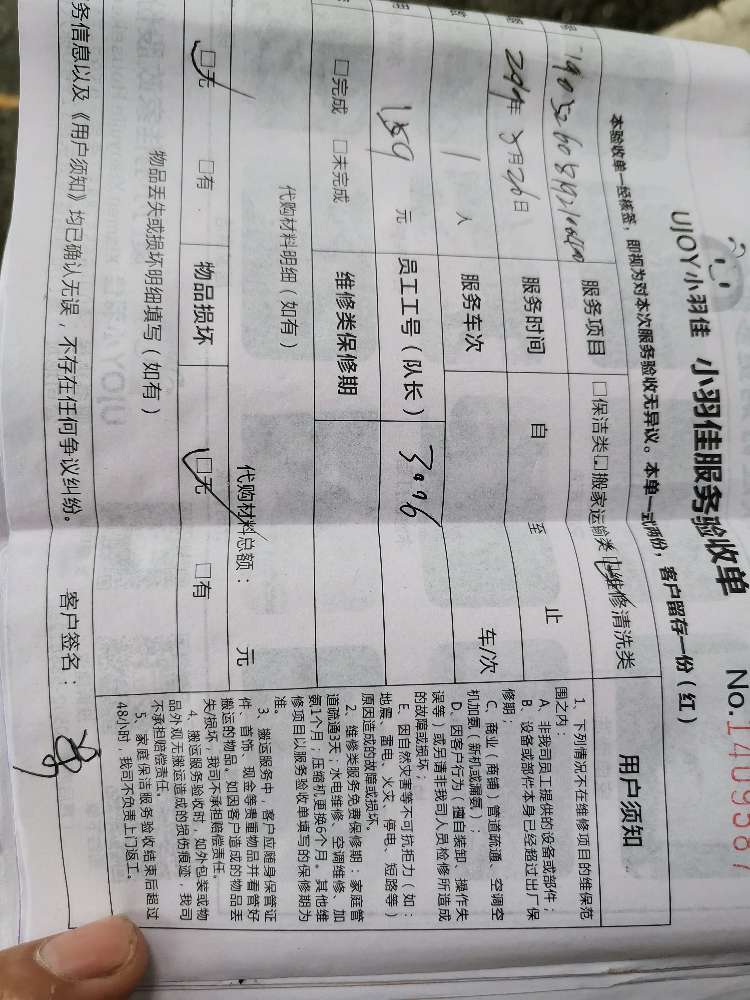 UJOY小羽佳 小羽佳服务验收单
No.1409587
本验收单一经核签，即视为对本次服务验收无异议。本单一式两份，客户留存一份（红）
服务项目 □保洁类□搬家运输类□维修清洗类
年 月26日 服务时间 自 至 止
1 人 服务车次 车/次
元 员工工号（队长） 3096
□完成 □未完成 维修类保修期
代购材料明细（如有） 代购材料总额： 元
□无 □有 物品损坏 □无 □有
物品丢失或损坏明细填写（如有）
务信息以及《用户须知》均已确认无误，不存在任何争议纠纷。
客户签名：
用户须知
1、下列情况不在维修项目的维保范
围之内：
A、非我司员工提供的设备或部件；
B、设备或部件本身已经超过出厂保
修期；
C、商业／商铺／管道疏通、空调空
机加氨（新机或漏氨）；
D、因客户行为（擅自装卸、操作失
误等）或另请非我司人员检修所造成
的故障或损坏；
E、因自然灾害等不可抗拒力（如：
地震、雷电、火灾、停电、短路等）
原因造成的故障或损坏。
2、维修类服务免费保修期：家庭管
道疏通3天；水电维修、空调维修、加
氨1个月；压缩机更换6个月。其他维
修项目以服务验收单填写的保修期为
准。
3、搬运服务中，客户应随身保管证
件、首饰、现金等贵重物品并看管好
搬运的物品。如因客户造成的物品丢
失/损坏，我司不承担赔偿责任。
4、搬运服务验收时，如外包装或物
品外观无搬运造成的损伤痕迹，我司
不承担赔偿责任。
5、家庭保洁服务验收结束后超过
48小时，我司不负责上门返工。